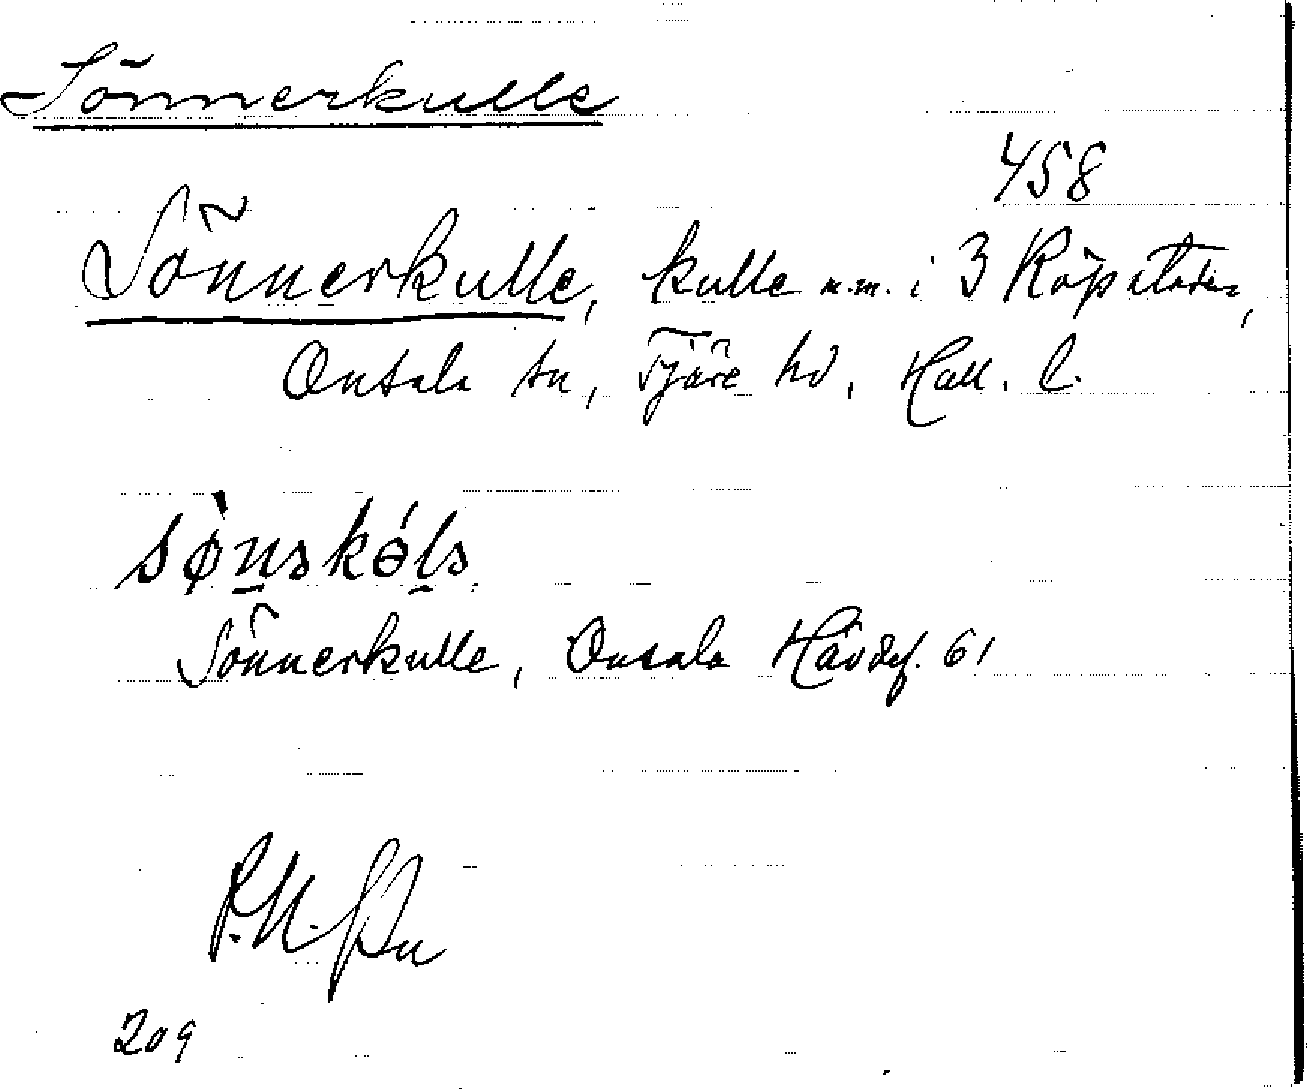 Sönnerkulle
458
Sönnerkulle, kulle m.m. i 3 Köpstaden,
Onsala sn, Fjäre hd, Hall. l.
sø̀nskóls
Sönnerkulle, Onsala Hävdef. 61
209